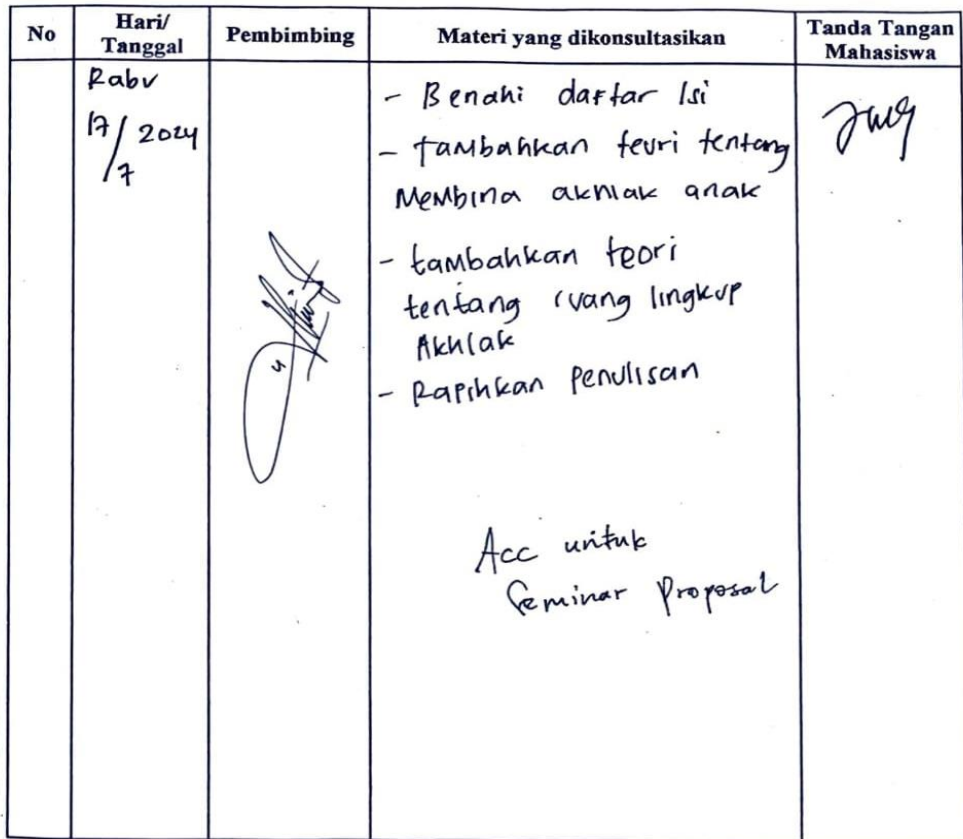 No
Hari/
Tanggal
Pembimbing
Materi yang dikonsultasikan
Tanda Tangan
Mahasiswa
Rabu
17/7 2024
- Benahi daftar Isi
- tambahkan teori tentang
Membina akhlak anak
- tambahkan teori
tentang ruang lingkup
Akhlak
- Rapihkan Penulisan
Acc untuk
Seminar Proposal